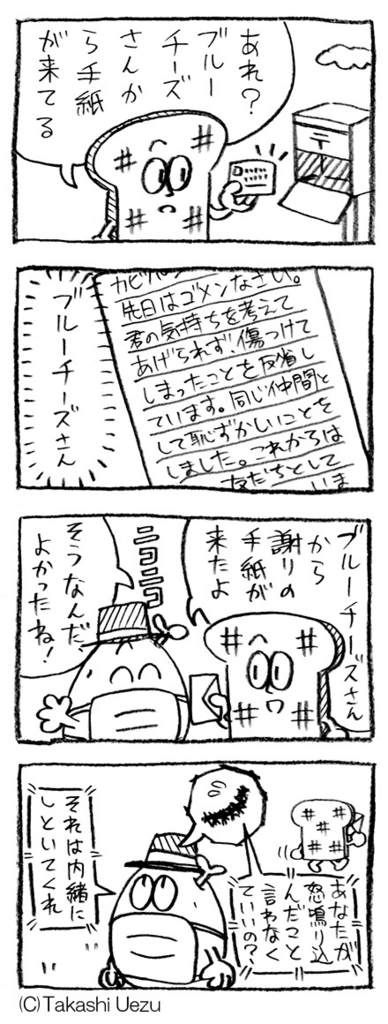 あれ?
ブルー
チーズ
さんか
ら手紙
が来てる
先日はゴメンなさい。
君の気持ちを考えて
あげられず、傷つけて
しまったことを反省し
ています。同じ仲間と
して恥ずかしいことを
しました。これからは
友だちとして
いま
ブルーチーズさん
ブルーチーズさん
から
謝りの
手紙が
来たよ
ニコニコ
そうなんだ、
よかったね!
あなたが
怒鳴り込
んだこと
言わなく
ていいの?
それは内緒に
しといてくれ
(C)Takashi Uezu